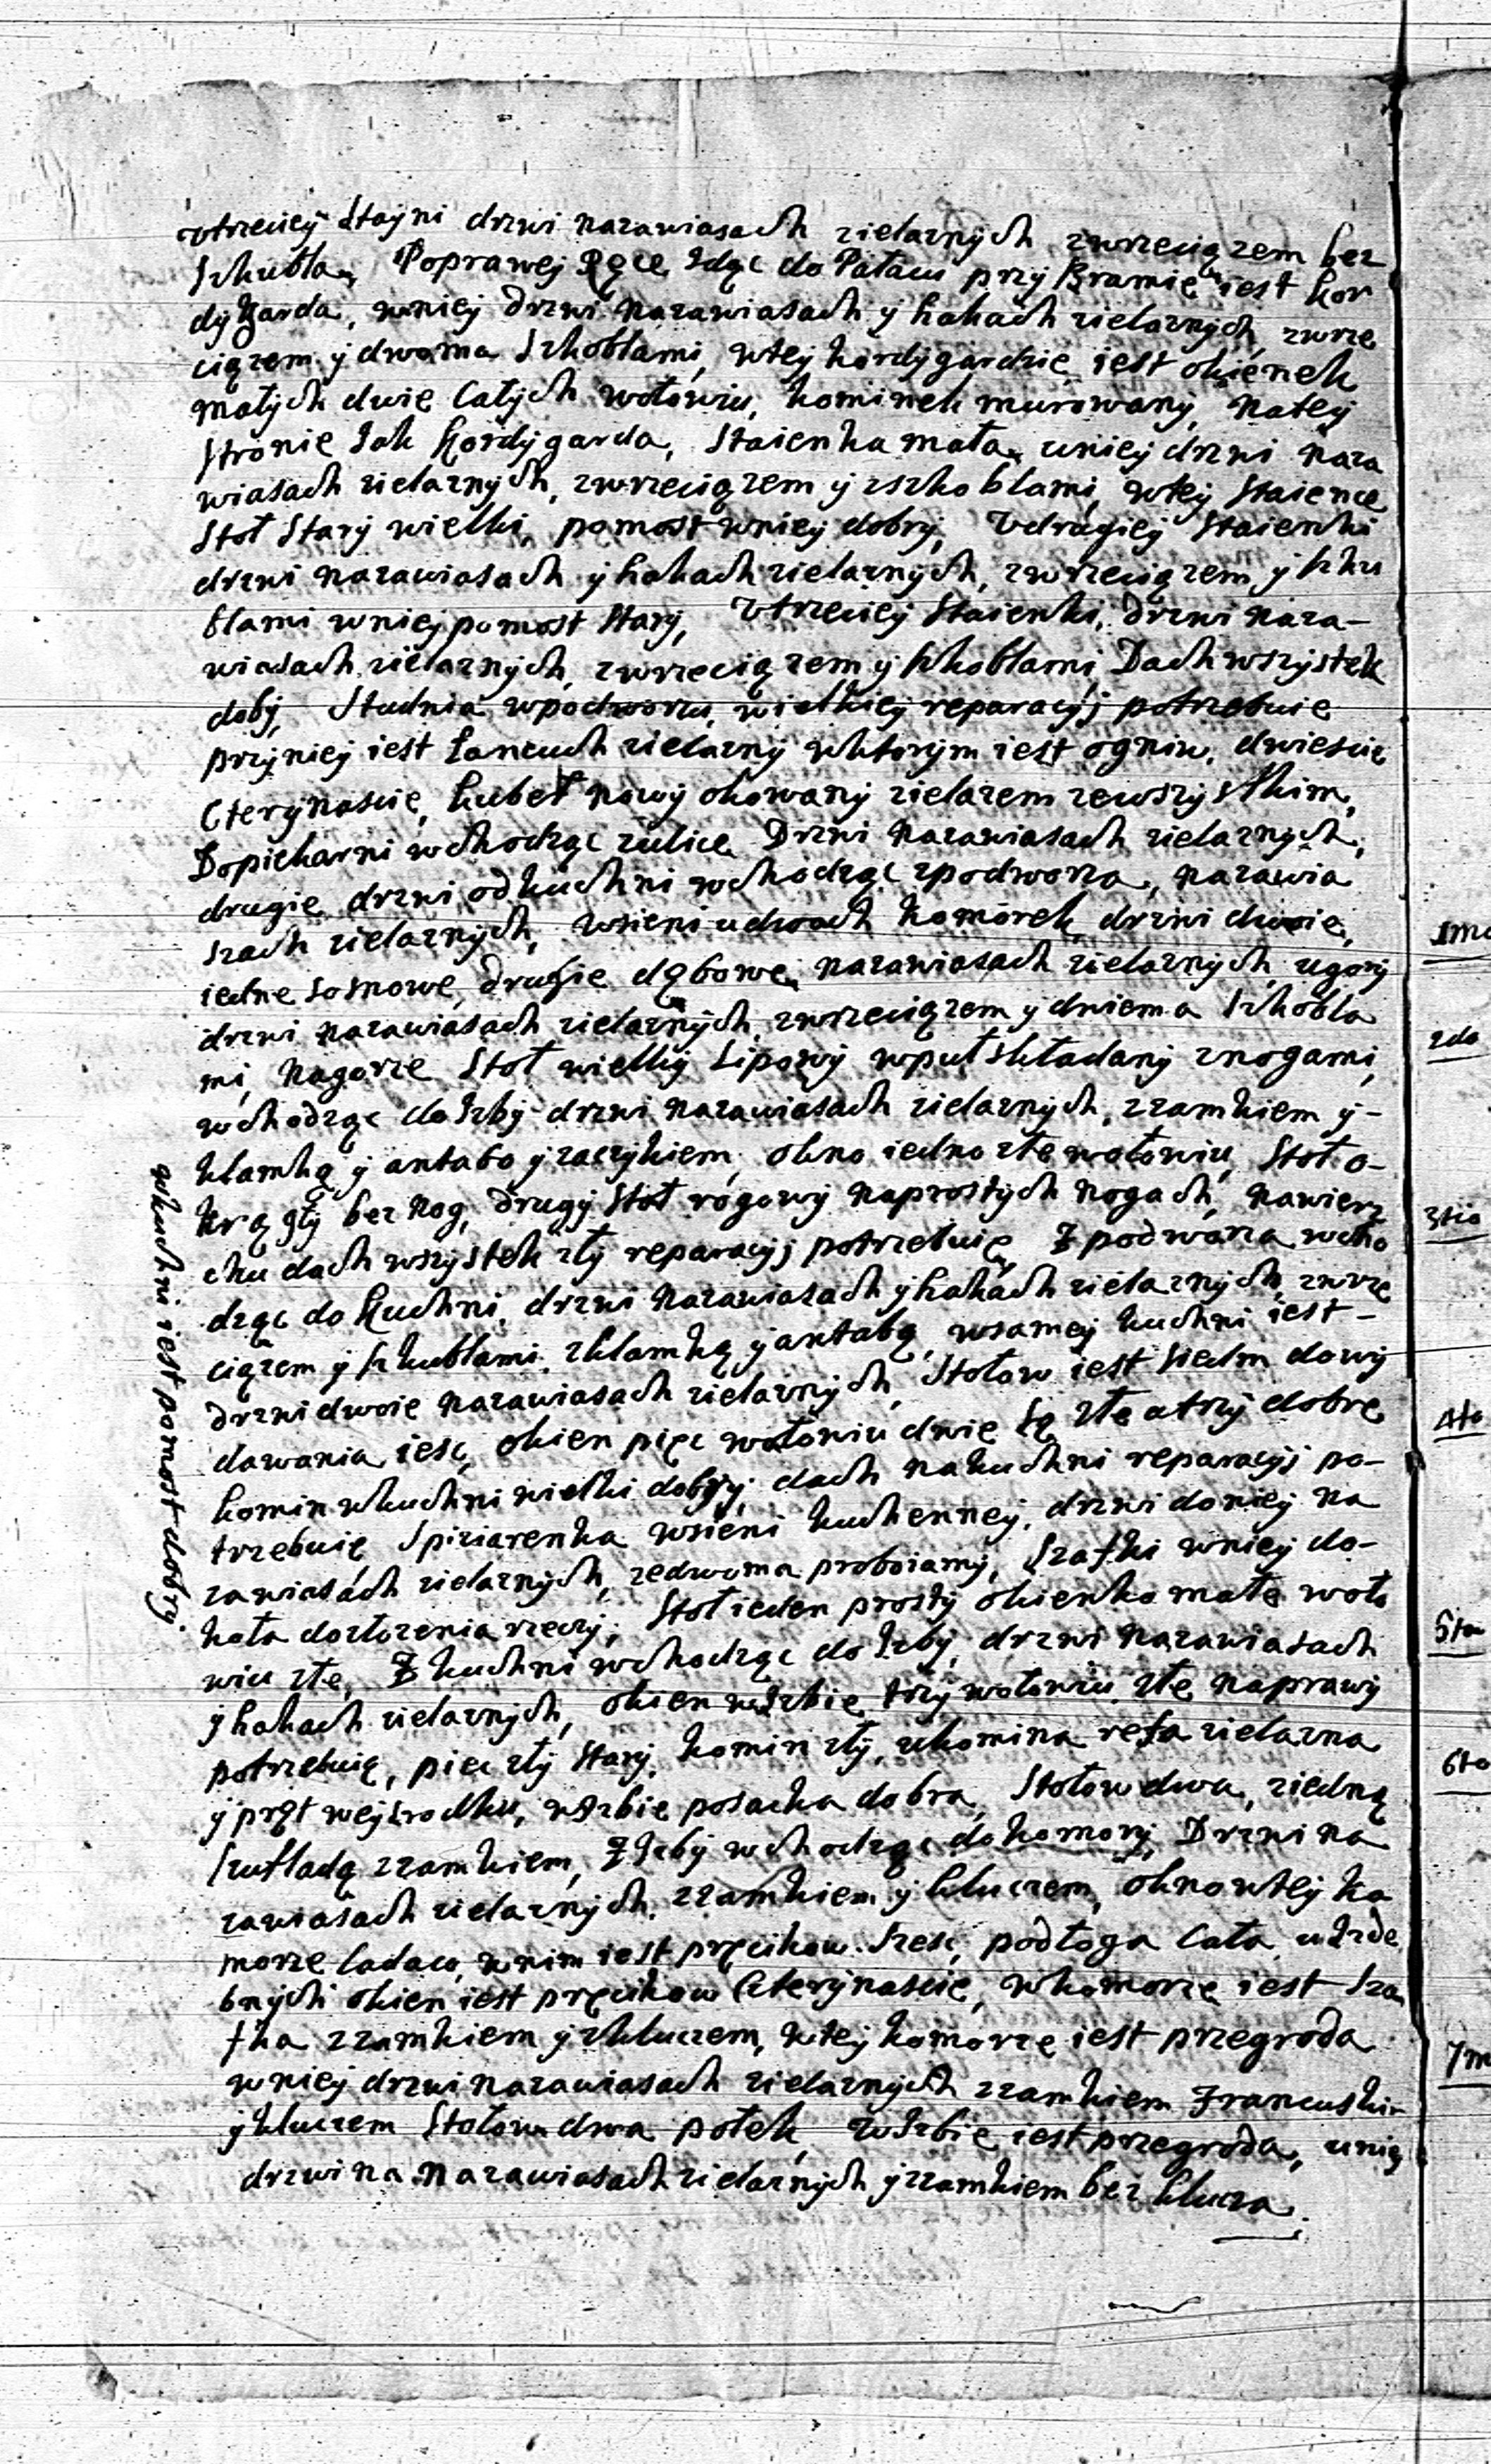 vtrzeciey Stayni drzwi nazawiasach zielaznych zwrzeciązem bez
Szkubla, Poprawey Ręce Idąc do Pałacu przy Bramie iest Kor
dygarda, wniey drzwi nazawiasach y hakach zielaznych, zwrze
ciązem y dwoma Szkoblami, wtey kordygardzie iest okienek
małych dwie Całych wołowiu, kominek murowany, natey
Stronie Iak Kordygarda, Staienka mała, wniey drzwi naza
wiasach zielaznych, zwrzeciązem y zszkoblami, wtey Staience
Stoł Stary wielki, pomost wniey dobry, Vdrugiey Staienki
drzwi nazawiasach y hakach zielaznych, zwrzeciązem, y szku
blami wniey pomost Stary, Vtrzeciey Staienki, drzwi naza-
wiasach zielaznych, zwrzeciązem y szkoblami, Dach wszystek
doby, Studnia wpodworzu, wielkiey reparacyj potrzebuie
przyniey iest Łancuch zielazny wktorym iest ogniw, dwiescie
Cterynascie, kubeł nowy okowany zielazem zewszystkim,
Dopiekarni wchodząc zulice Drzwi nazawiasach zielaznych,
drugie drzwi od kuchni wchodząc zpodworza, nazawia
szach zielaznych, wsieni udwoch komorek, drzwi dwoie,
iedne sosnowe, drugie dębowe, nazawiasach zielaznych, ugory
drzwi nazawiasach zielaznych, zwrzeciązem y dwiema Szkobla
mi, Nagorze Stoł wielky Lipowy wpuł składany znogami,
wchodząc do Izby drzwi nazawiasach zielaznych, zzamkiem y-
klamką y antabo y zaczykiem, okno iedno złe wołowiu, Stoł o-
krągły bez nog, drugy Stoł rogowy naprostych nogach, nawierz
chu dach wszystek zły reparacyj potrzebuie, Z podwarza wcho
dząc do Kuchni, drzwi nazawiasach y hakach zielaznych, zwrze
ciązem y szkublami, zklamką y antabą, wsamey kuchni iest -
drzwi dwoie nazawiasach zielaznych, Stołow iest siedm dowy
dawania iesc, okien pięc wołowiu dwie są złe a trzy dobre
komin wkuchni wielki dobry, dach nakuchni reparacyj po-
trzebuie, Spiziarenka wsieni kuchenney, drzwi doniey na
zawiasach zielaznych, zedwoma proboiamy, Szafki wniey do-
koła dozłozenia rzeczy, Stoł ieden prosty okienko małe woło
wiu złe, Z kuchni wchodząc do Izby, drzwi nazawiasach
y hakach zielaznych, okien wIzbie trzy wołowiu, złe naprawy
potrzebuie, piec zły Stary, komin zły, ukomina refa zielazna
y pręt wejsrodku, wIzbie posacka dobra, Stołow dwa, ziedną
Szufladą zzamkiem, Z Izby wchodząc do komory, Drzwi na
zawiasach zielaznych, zzamkiem y kluczem, okno wtey ko
morze ladaco, wnim iest pręcikow Szesc, podłoga Cała, uIzde
bnych okien iest pręcikow Czterynascie, wkomorze iest Sza
fka zzamkiem y zkluczem, wtey komorze iest przegroda
wniey drzwi nazawiasach zielaznych zzamkiem Francuskim
y kluczem Stołow dwa połek, wIzbie iest przegroda, wnię
drzwi na nazawiasach zielaznych y zzamkiem bez klucza.
wkuchni iest pomost dobry.
1mo
2do
3tio
4to
5to
6to
7m